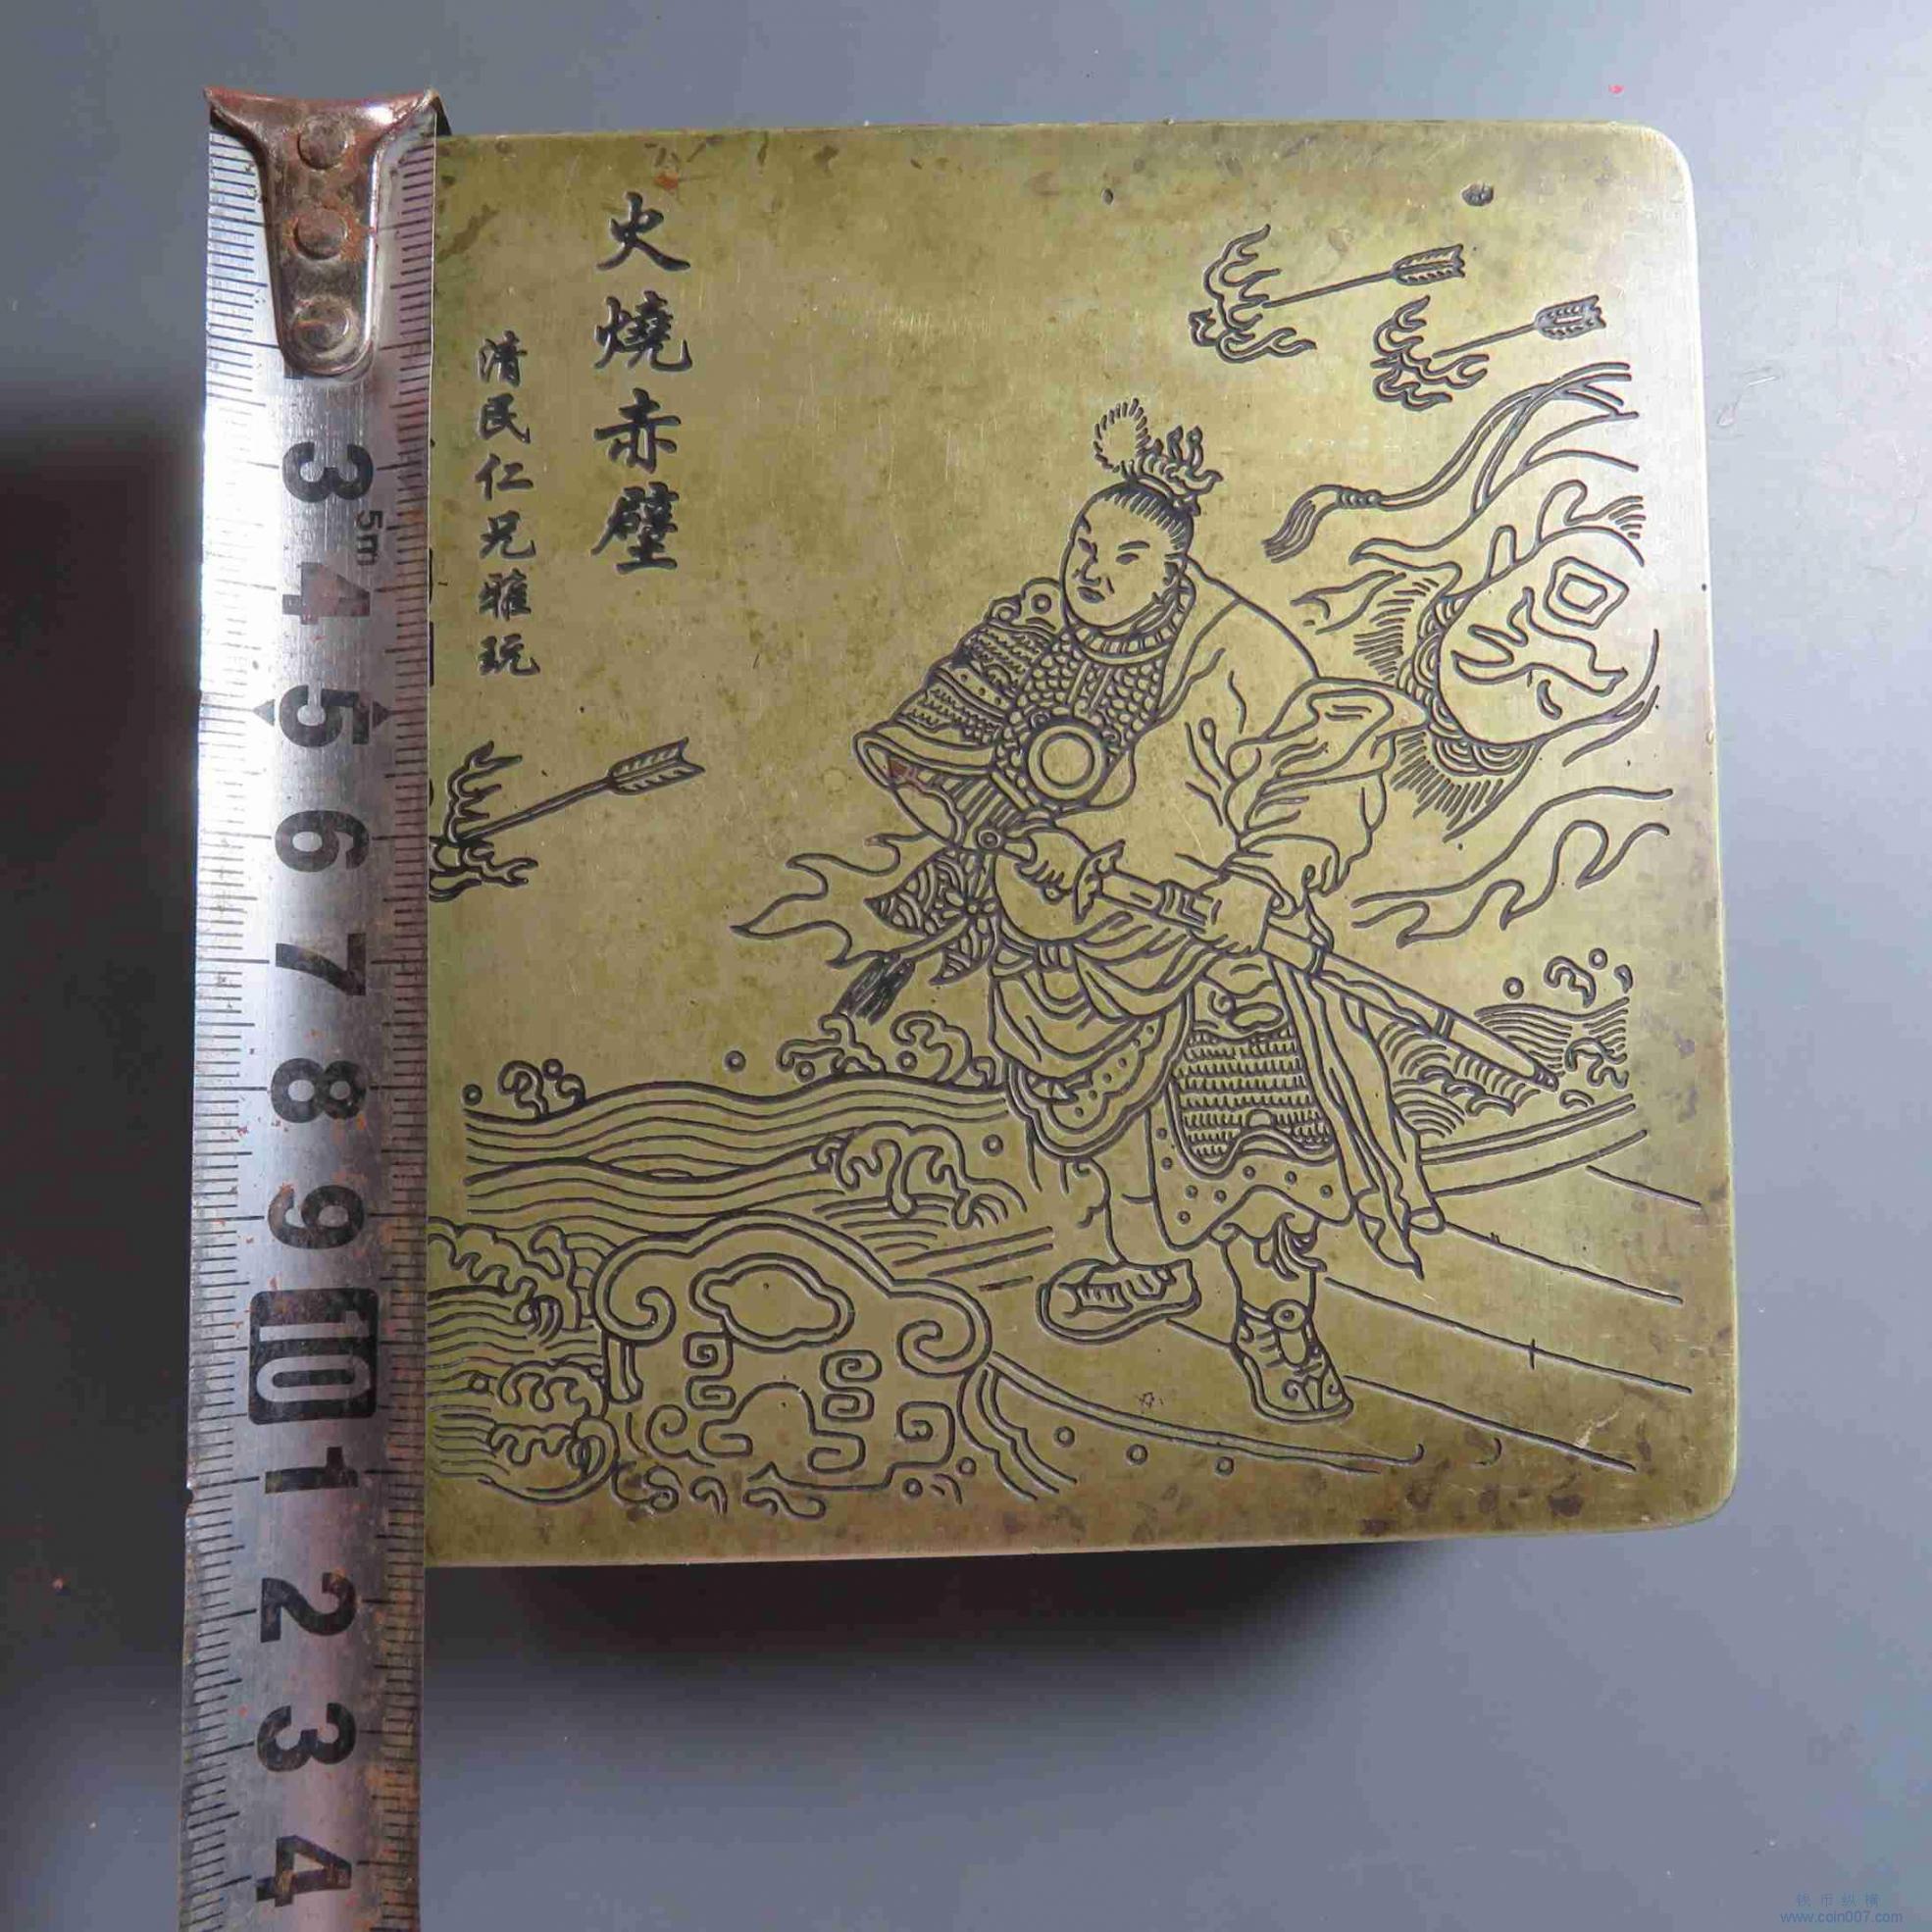 火燒赤壁
清民仁兄雅玩
3
5m
4
5
6
7
8
9
10
1
2
3
4
钱币纵横
www.coin007.com